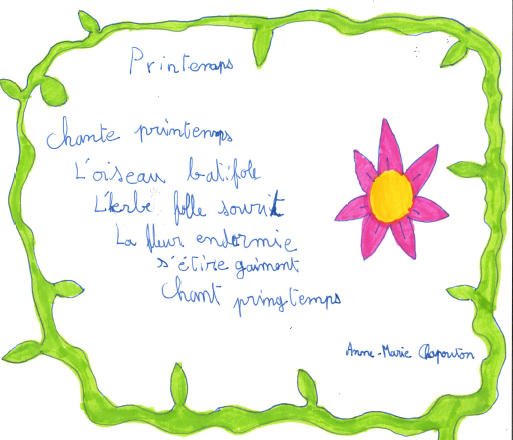 Printemps
chante printemps
L'oiseau batifole
L'herbe folle sourit
La fleur endormie
s'étire gaiment
Chant pringtemps
Anne-Marie Chapouton